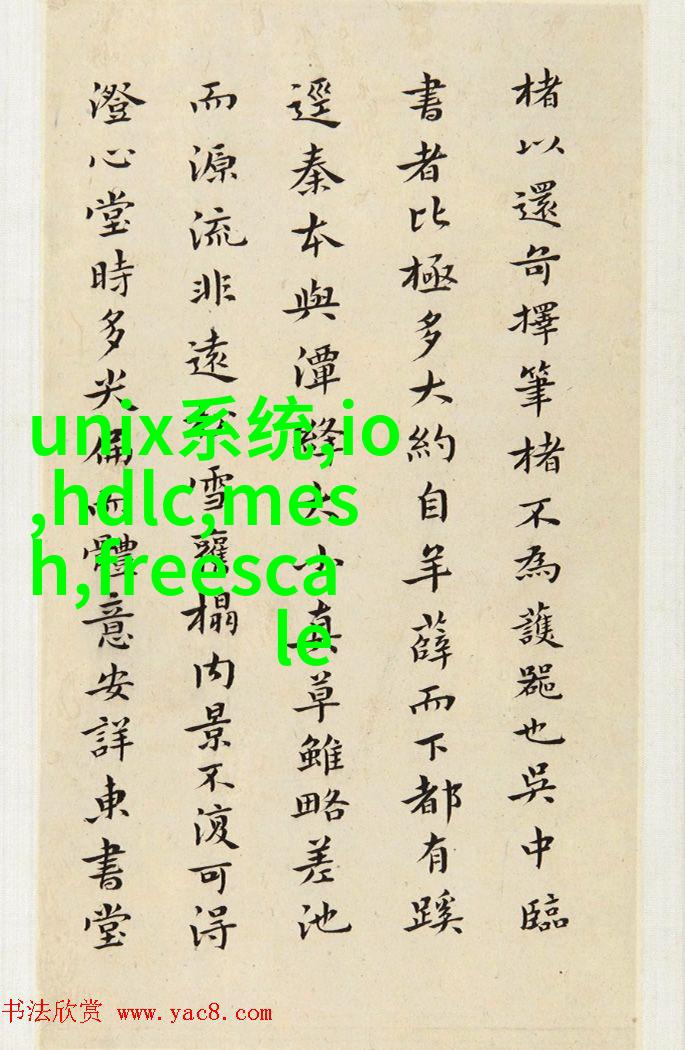 楮以還奇擇筆楮不為護器也吳中臨
書者比極多大約自羊薛而下都有蹊
逕秦本與潭絳大小真草雖略差池
而源流非遠雪舊榻內景不復可得
澄心堂時多尖偏而體意安詳東書堂
unix系统,io
,hdlc,mes
h,freesca
le
书法欣赏 www.yac8.com